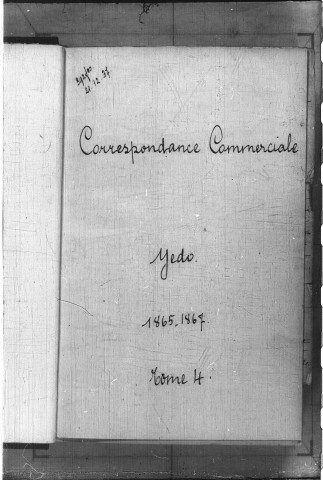 21.12.37
Correspondance Commerciale
Yedo.
1865, 1867
Tome 4.